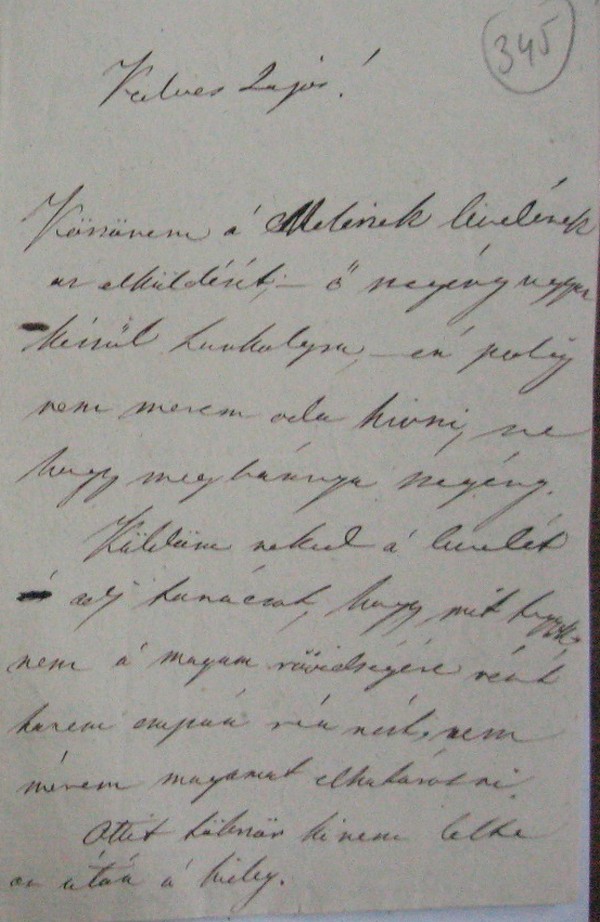 345
Kedves Lajos!
Köszönem á Melinek levelének
az elküldését; – ő szegény ugyan
készül hankolysra, – én pedig
nem merem oda hivni, ne
hogy megbánnya szegény.
Küldöm neked á levelét
adj tanácsot, hogy mit tegyek,
nem á magam rövidségére nézek
hanem csupán reá nézt, nem
mérem magamat elhatározni.
Ottit többször kinem lelte
az után á hideg.